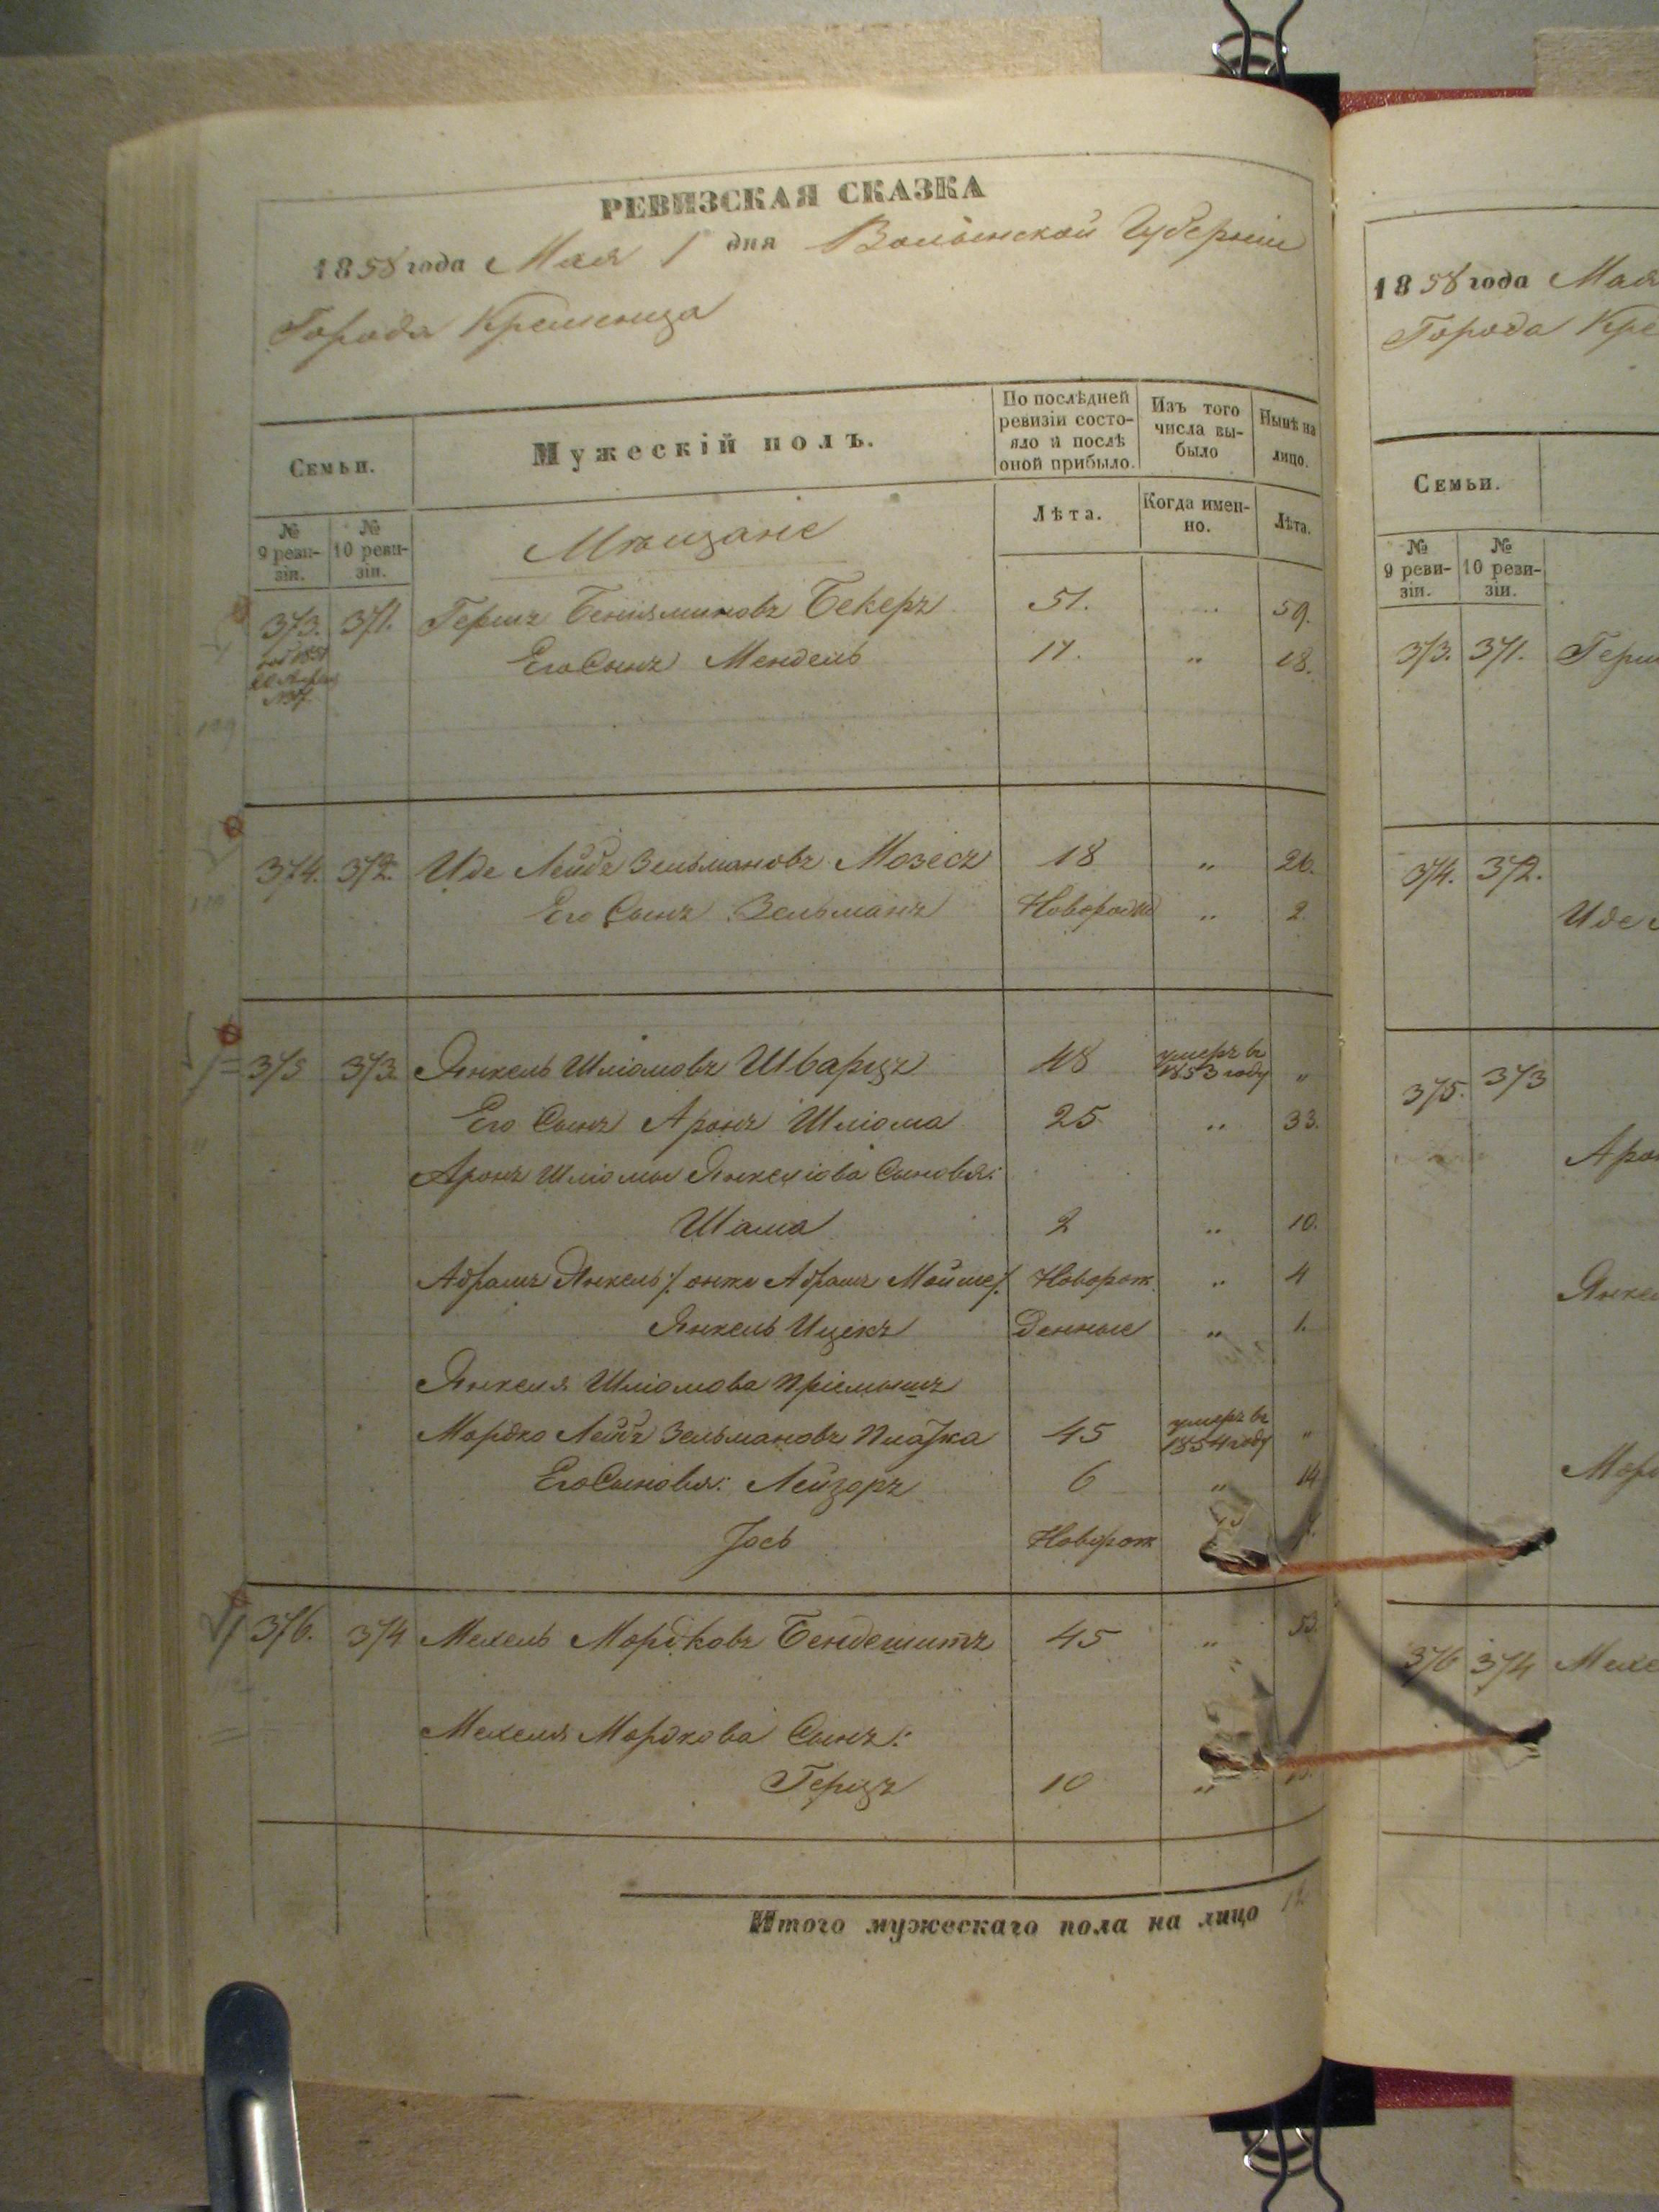 РЕВИЗСКАЯ СКАЗКА
1858 года Мая 1 дня Волынской Губерніи
Города Кременца
Семьи.
Мужескій полъ.
По послѣдней ревизіи состояло и послѣ оной прибыло.
Изъ того числа выбыло
Нынѣ на лицо.
№ 9 ревизіи.
№ 10 ревизіи.
Лѣта.
Когда именно.
Лѣта.
Мѣщане
373. 371. Гершъ Беніяминовъ Бекеръ 51. " 59.
Его Сынъ Мендель " 18.
374. 372. Иде Лейбъ Зельмановъ Мозесъ 18 " 26.
Его Сынъ Зельманъ " 2
375 373 Янкель Шліомовъ Шварцъ 48 умеръ въ 1853 году "
Его Сынъ Аронъ Шліома 25 " 33.
Аронъ Шліомы Янкеліова Сыновья:
Шама 2 " 10.
Абрамъ Янкель /: онже Абрамъ Мойше /: Новорож " 4
Янкель Ицекъ денные " 1.
Янкеля Шліомова Пріемышъ
Мордко Лейбъ Зельмановъ 45 умеръ въ 1854 году "
Его Сыновья: Лейзоръ 6 " 14
Іось Новорож
376. 374 Мехель Мордковъ 45 " 53.
Мехеля Мордкова Сынъ:
Герцъ 10 "
Итого мужескаго пола на лицо
1858 года Мая
Города Кре
Семьи.
№ 9 ревизіи.
№ 10 ревизіи.
373. 371. Герш
374. 372.
Иде
375. 373
Аро
Янке
Морд
376 374 Мехе